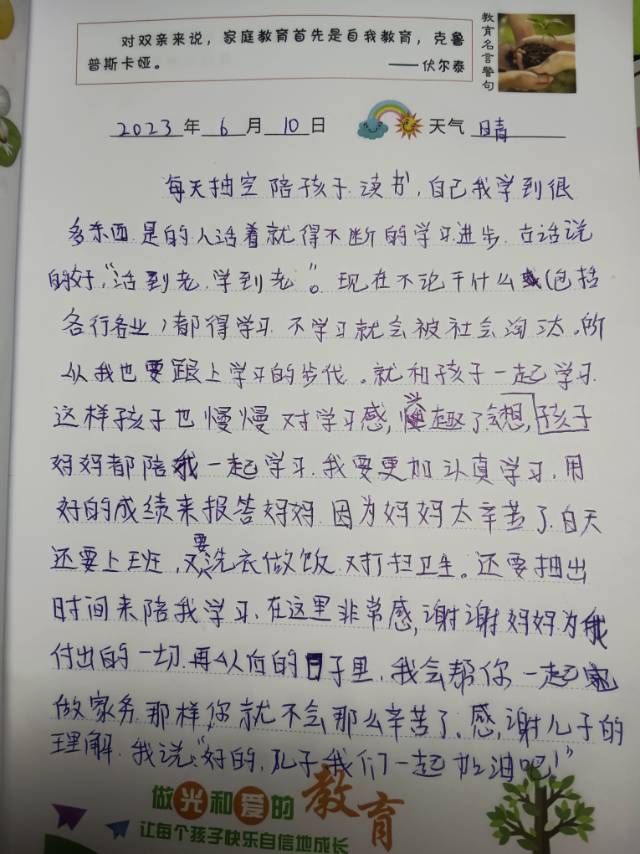 对双亲来说，家庭教育首先是自我教育，克鲁
普斯卡娅。 ——伏尔泰
教育名言警句
2023年6月10日 天气 晴
每天抽空陪孩子读书，自己我学到很
多东西是的人活着就得不断的学习进步，古话说
的好，“活到老，学到老”。现在不论干什么（包括
各行各业）都得学习，不学习就会被社会淘汰。所
以我也要跟上学习的步伐。就和孩子一起学习.
这样孩子也慢慢对学习感兴趣了会想，孩子
妈妈都陪我一起学习.我要更加认真学习，用
好的成绩来报答妈妈.因为妈妈太辛苦了.白天
还要上班，又要洗衣做饭 又打扫卫生。还要抽出
时间来陪我学习.在这里非常感谢谢妈妈为我
付出的一切.再以后的日子里，我会帮你一起
做家务.那样你就不会那么辛苦了、感谢儿子的
理解.我说：“好的，儿子我们一起加油吧！”
做光和爱的教育
让每个孩子快乐自信地成长